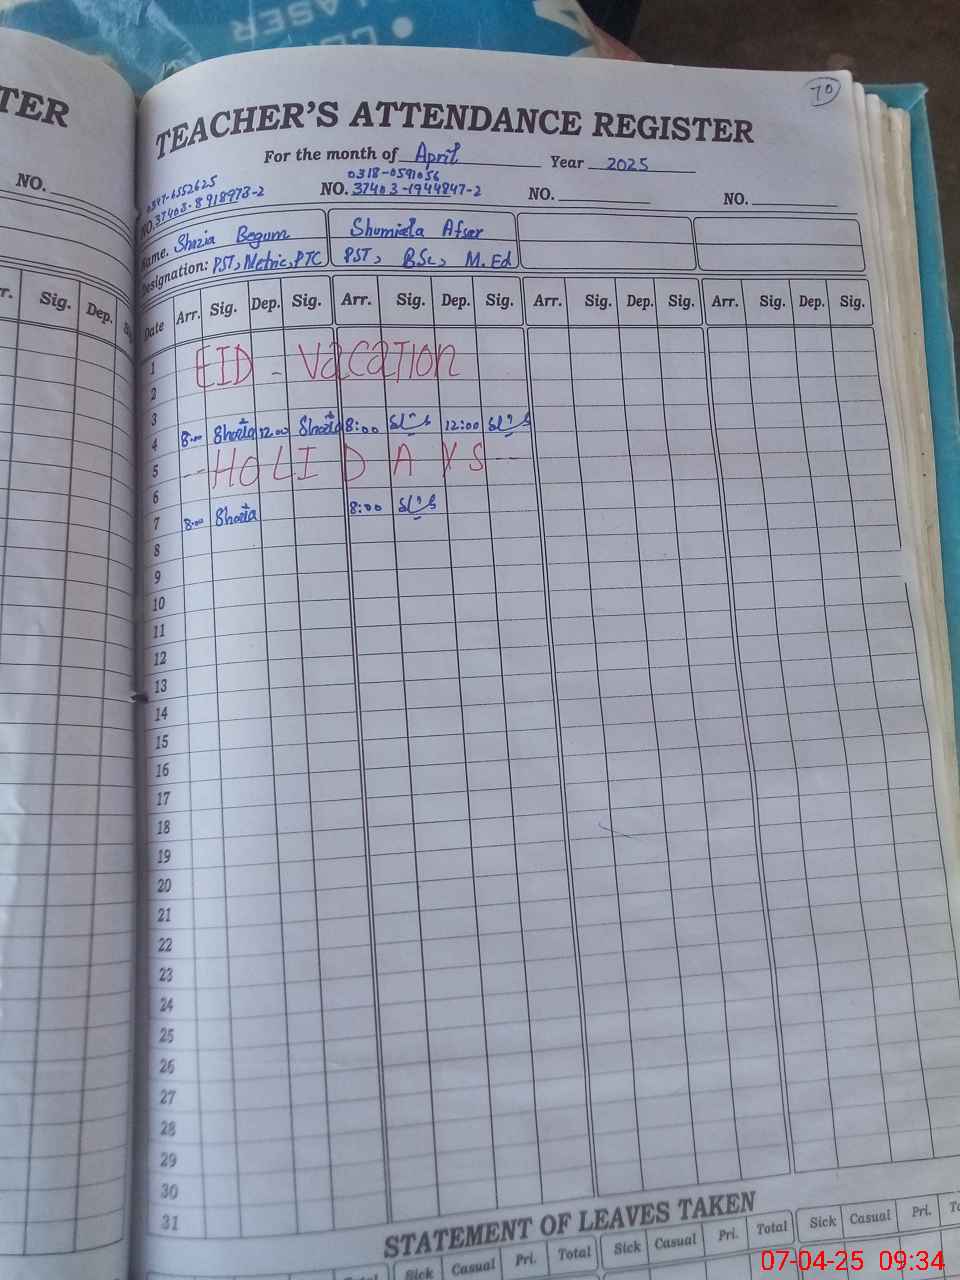 LASER
TER
TEACHER'S ATTENDANCE REGISTER
70
For the month of April Year 2025
NO.
0347-6552625
NO. 37403-8918973-2
0318-0591056
NO. 37403-1944847-2
NO.
NO.
Name. Shazia Begum Shumiela Afser
Designation: PST, Metric, PTC PST, BSc, M.Ed
r. Sig. Dep.
Date Arr. Sig. Dep. Sig. Arr. Sig. Dep. Sig. Arr. Sig. Dep. Sig. Arr. Sig. Dep. Sig.
1 EID - Vacation
2
3
4 8:00 12:00 8:00 12:00
5 - HOLIDAYS -
6
7 8:00 8:00
8
9
10
11
12
13
14
15
16
17
18
19
20
21
22
23
24
25
26
27
28
29
30
31
STATEMENT OF LEAVES TAKEN
Total Sick Casual Pri. Total Sick Casual Pri. Total Sick Casual Pri.
07-04-25 09:34